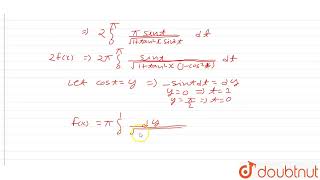 ⇒ 2 ∫₀^π π sint / √(1+tan²x sin²t) dt
2f(x) ⇒ 2π ∫₀^π sint / √(1+tan²x (1-cos²t)) dt
Let cost = y ⇒ -sint dt = dy
y=0 ⇒ t=1
y=π/2 ⇒ t=0
f(x) = π ∫₀^1 dy / √
doubtnut